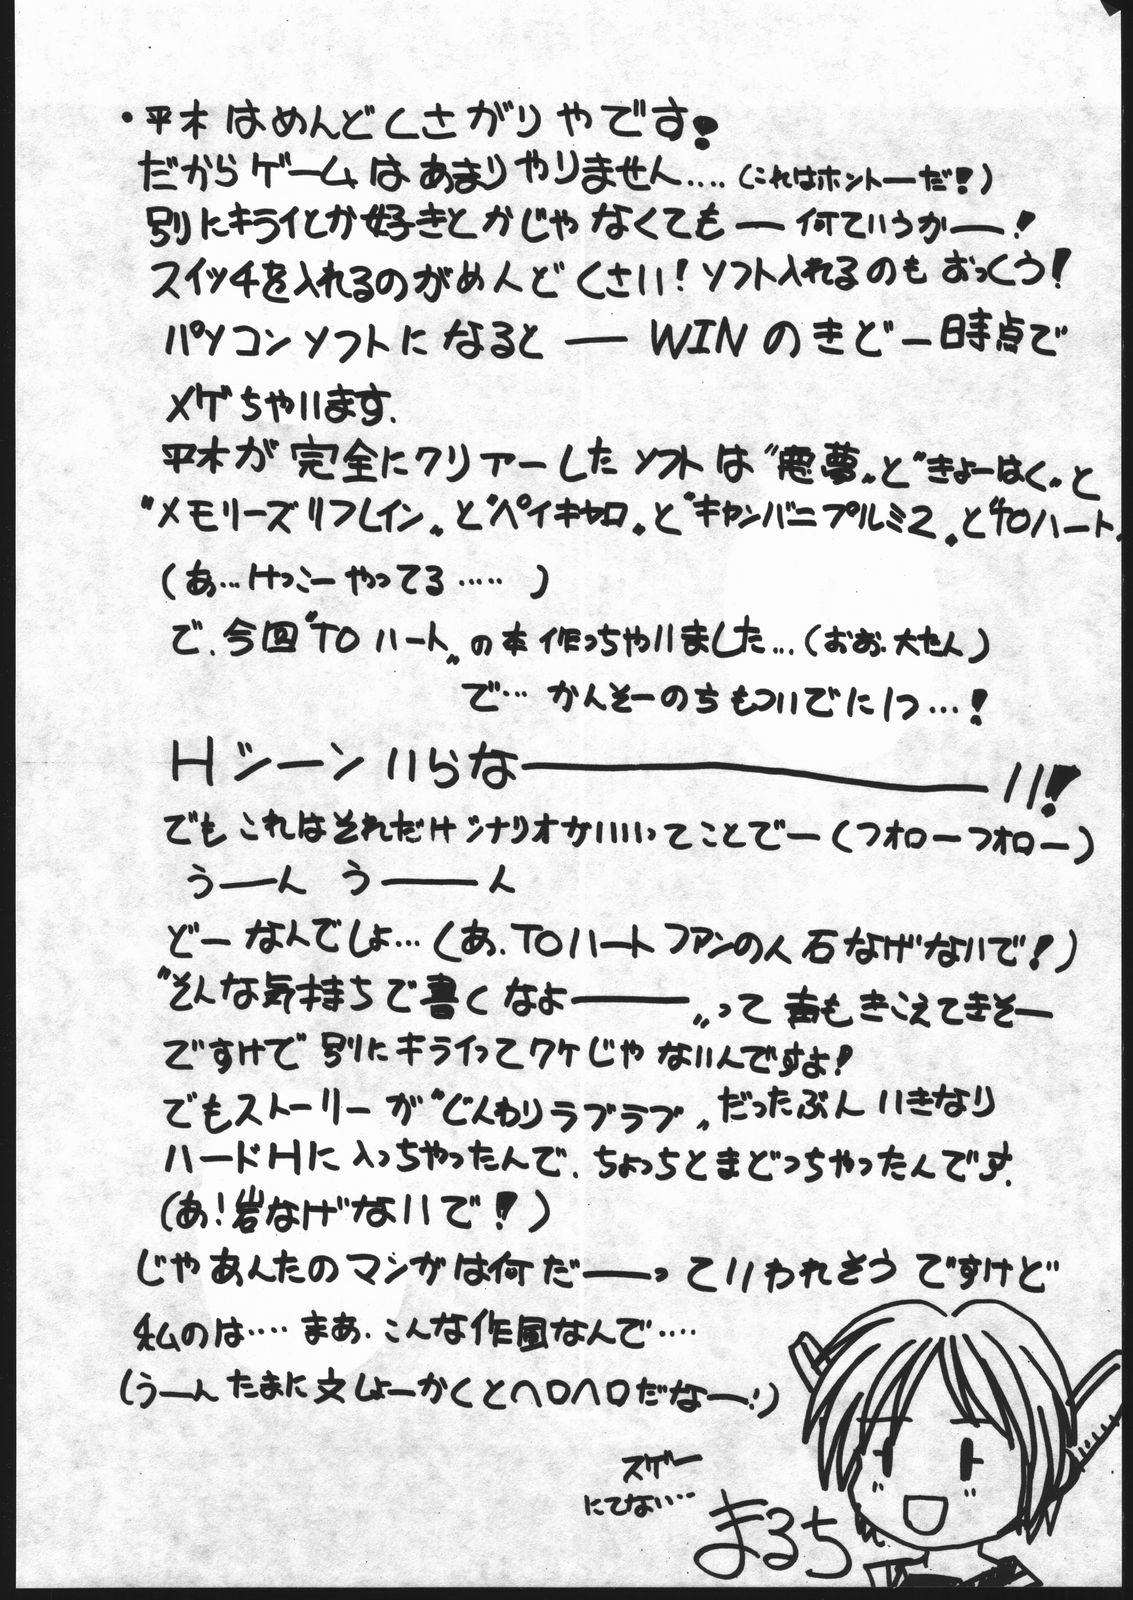 ・平木はめんどくさがりやです!
だからゲームはあまりやりません‥‥(これはホントーだ!)
別にキライとか好きとかじゃなくてもー何ていうかー!
スイッチを入れるのがめんどくさい!ソフト入れるのもおっくう!
パソコンソフトになるとーWINのきどー時点で
メゲちゃいます.
平木が完全にクリアーしたソフトは"悪夢"と"きょーはく"と
"メモリーズリフレイン"と"ペイキャロ"と"キャンバニプルミ2"と"TOハート"
(あ…けっこーやってる‥‥‥)
で.今回"TOハート"の本作っちゃいました…(おお.大セん)
で…かんそーのちもついでに1つ…!
Hシーンいらなーーーーーい!
でもこれはそれだけシナリオがいいってことでー(フォローフォロー)
うーん うーーん
どーなんでしょ…(あ.TOハートファンの人石なげないで!)
"そんな気持ちで書くなよーーー"って声もきこえてきそー
ですけで別にキライってワケじゃないんですよ!
でもストーリーが"じんわりラブラブ"だったぶんいきなり
ハードHに入っちゃったんで.ちょっとまどっちゃったんです.
(あ!岩なげないで!)
じゃあんたのマンガは何だーーっていわれそうですけど
私のは‥‥まあ.こんな作風なんで‥‥
(うーんたまに文しょーかくとヘロヘロだなー!)
スゲー
にてない…
まるち